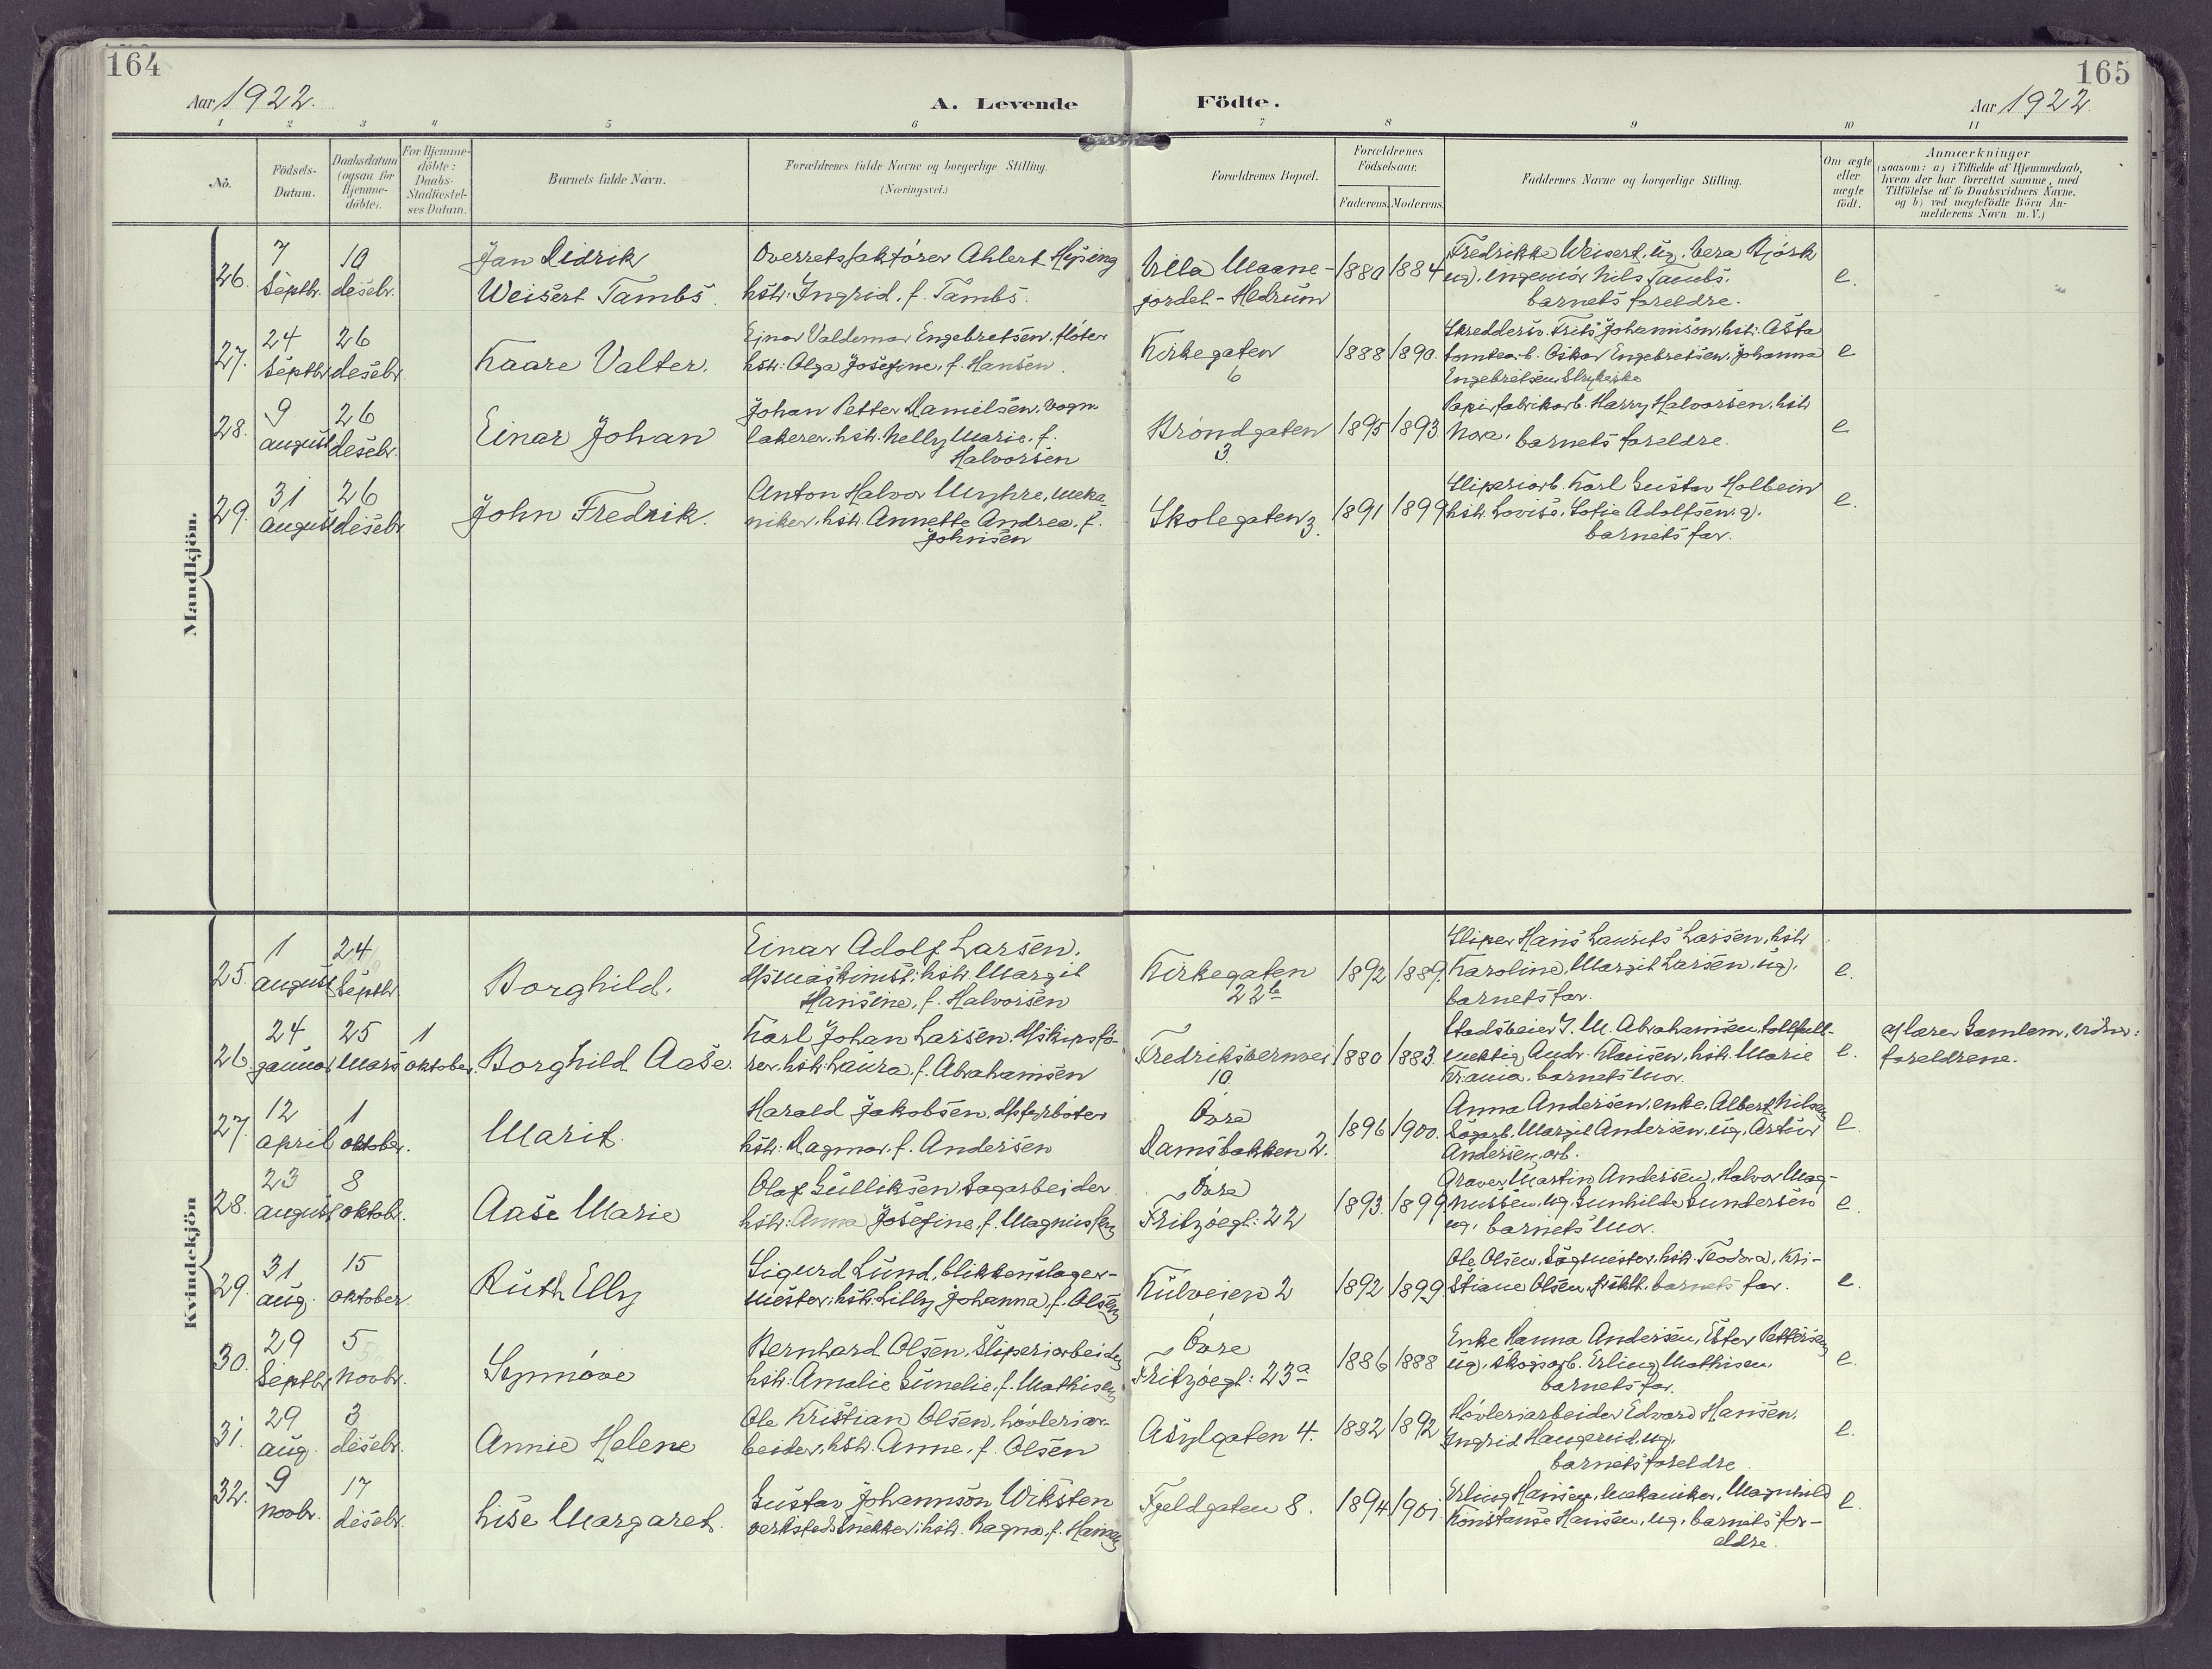 164
165
Aar 1922.
A. Levende
Födte.
Aar 1922.
1 2 3 4 5 6 7 8 9 10 11
No.
Födsels-Datum.
Daabsdatum (ogsaa for Hjemme-döbte).
For Hjemme-döbte: Daabs-Stadfæstel-ses Datum.
Barnets fulde Navn.
Forældrenes fulde Navne og borgerlige Stilling.
(Næringsvei.)
Forældrenes Bopæl.
Forældrenes Födselsaar.
Faderens. Moderens.
Faddernes Navne og borgerlige Stilling.
Om ægte eller uægte födt.
Anmærkninger
(saasom: a) i Tilfælde af Hjemmedaab,
hvem der har forrettet samme, med
Tilföielse af to Daabsvidners Navne.
og b) ved uægtefödte Börn An-
melderens Navn m. V.)
Mandkjön.
26.
7 septbr.
10 desebr.
Jan Didrik
Weisert Tambs.
Overretssakförer Ahlert Hysing
hstr: Ingrid, f. Tambs.
Villa Maane-
jordet - Hedrum
1880 1884
Fredrikke Weisert, ug. Vera Björk
ug. ingeniör Nils Tambs.
barnets foreldre.
e.
27.
24 septbr
26 desebr
Kaare Valter.
Ejnar Valdemar Engebretsen, fløter
hstr: Olga Josefine, f. Hansen.
Kirkegaten
6
1888 1890.
Skreddersv. Frits Johannson, hstr. Asta
tomtearb. Oskar Engebretsen, Johanna
Engebretsen, Strykerske
e
28.
9 august
26 desebr.
Einar Johan
Johan Petter Danielsen, vogn-
lakerer, hstr. Nelly Marie, f.
Halvorsen
Bröndgaten
3.
1895 1893.
Papirfabrikarb. Harry Halvorsen, hstr
Nora, barnets foreldre.
e
29.
31 august
26 desebr
John Fredrik.
Anton Halvor Myhre, meka-
niker, hstr. Annette Andrea, f.
Johnsen
Skolegaten 3.
1891 1899
Sliperiarb. Karl Gustav Holbein
hstr. Lovise, Sofie Adolfsen. g.
barnets far.
e.
Kvindekjön
25.
1 august
24 septbr
Borghild.
Einar Adolf Larsen,
dpsmaskinist, hstr. Margit
Hansine, f. Halvorsen
Kirkegaten
22 b
1892 1889.
Sliper Hans Laurits Larsen, hstr
Karoline, Margit Larsen, ug.
barnets far.
e.
26.
24 januar
25 mars
1 oktober.
Borghild Aase.
Karl Johan Larsen, dpskipsfö-
rer, hstr. Laura, f. Abrahamsen
Fredriksvernvei
10.
1880 1883.
Stadsveier J. M. Abrahamsen, tollfull-
mektig Andr. Klausen, hstr. Marie
barnets mor.
e.
af lærer Gamlem, vidner:
foreldrene.
27.
12 april
1 oktober.
Marit.
Harald Jakobsen, dpfyrböter
hstr: Dagmar, f. Andersen
Övre
Damsbakken 2.
1896 1900.
Anna Andersen, enke, Albert Nilsen
Sagarb. Margit Andersen, ug. Artur
Andersen, arb.
e.
28.
23 august
8 oktobr.
Aase Marie
Olaf Gulliksen Sagarbeider
hstr: Anna Josefine, f. Magnussen
Övre
Fritzöegt: 22
1893. 1899
Graver Martin Andersen, Halvor Mag-
nussen, ug. Gunhilda Gundersen
ug. barnets mor.
e.
29.
31 aug.
15 oktober.
Ruth Elly
Sigurd Lund, blikkenslager-
mester, hstr. Lilly Johanna, f. Olsen
Kulveien 2
1892 1899.
Ole Olsen, Sagmester, hstr. Teodora, Kri-
stiane Olsen, barnets far.
e.
30.
29 septbr
5 novbr.
Synnöve
Bernhard Olsen, Sliperiarbeider
hstr: Amalie Gunelie, f. Mathisen
Övre
Fritzöegt: 23 a
1886 1888
Enke Hanna Andersen, Ester Pettersen
ug. skogsarb. Erling Mathisen
barnets far.
e.
31.
29 aug.
3 desebr.
Annie Helene
Ole Kristian Olsen, hövleriar-
beider, hstr. Anne, f. Olsen
Asylgaten 4.
1882 1892
Hövleriarbeider Edvard Hansen,
Ingrid Haugerud, ug.
barnets foreldre
e.
32.
9 novbr.
17 desebr.
Lise Margaret.
Gustav Johannson Wiksten
verkstedssnekker, hstr. Ragna, f. Hansen
Fjeldgaten 8.
1894 1901
Erling Hansen, mekaniker, Magnhild
Konstanse Hansen, ug. barnets for-
eldre.
e.